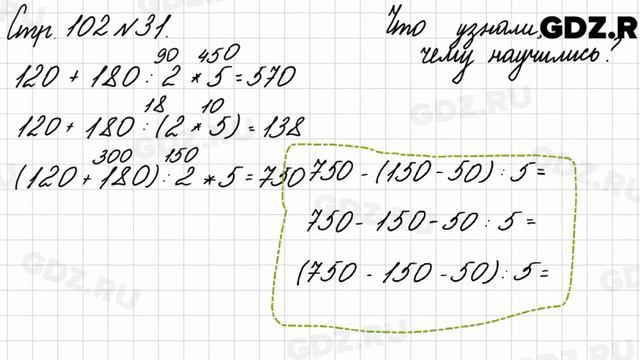 Стр. 102 №31.
Что узнали,
чему научились?
GDZ.R
90 450
120 + 180 : 2 * 5 = 570
18 10
120 + 180 : (2 * 5) = 138
300 150
(120 + 180) : 2 * 5 = 750
750 - (150 - 50) : 5 =
750 - 150 - 50 : 5 =
(750 - 150 - 50) : 5 =
GDZ.RU
GDZ.RU
GDZ.RU
GDZ.RU